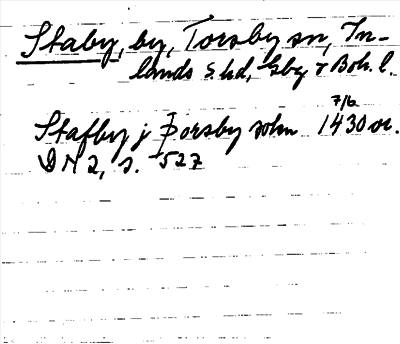 Staby, by, Torsby sn, In-
lands s. hd, Gbg o Boh. l.
7/6
Stafby j Þorsby sokn 1430 or.
DN 2, s. 527